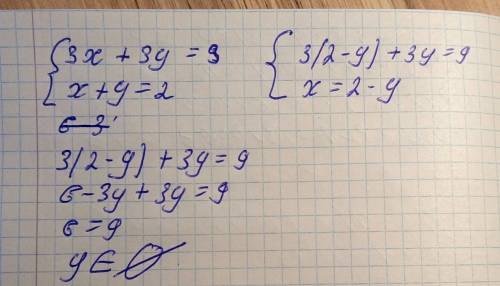 { 3x + 3y = 9
x + y = 2
{ 3(2 - y) + 3y = 9
x = 2 - y
6 3
3(2 - y) + 3y = 9
6 - 3y + 3y = 9
6 = 9
y ∈ ∅